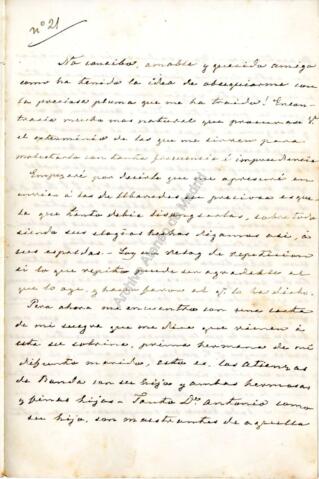 nº 21
No concibo, amable y querido amigo
como ha tenido la idea de obsequiarme con
la preciosa pluma que me ha traido! Encon-
traria mucho mas natural que procurase V.
el exterminio de las que me sirven para
molestarle con tanta frecuencia é imprudencia
Empezaré por decirle que me apresuré en
enviar á las de
la que tanto debia disgustarlas, sobre todo
siendo sus elogios hechos digamos asi, á
sus espaldas - Soy un reloj de repeticion
si lo que repito puede ser agradable al
que lo oye, y hace favor al q. lo ha dicho.
Pero ahora me encuentro con una carta
de mi suegra que me dice que vienen á
esta su sobrina, prima hermana de mi
difunto marido, esto es, las Atienzas
de Ronda con su hijo y ambas hermosas
y finas hijas - Tanto Dn. Antonio como
su hijo, son maestrantes de aquella